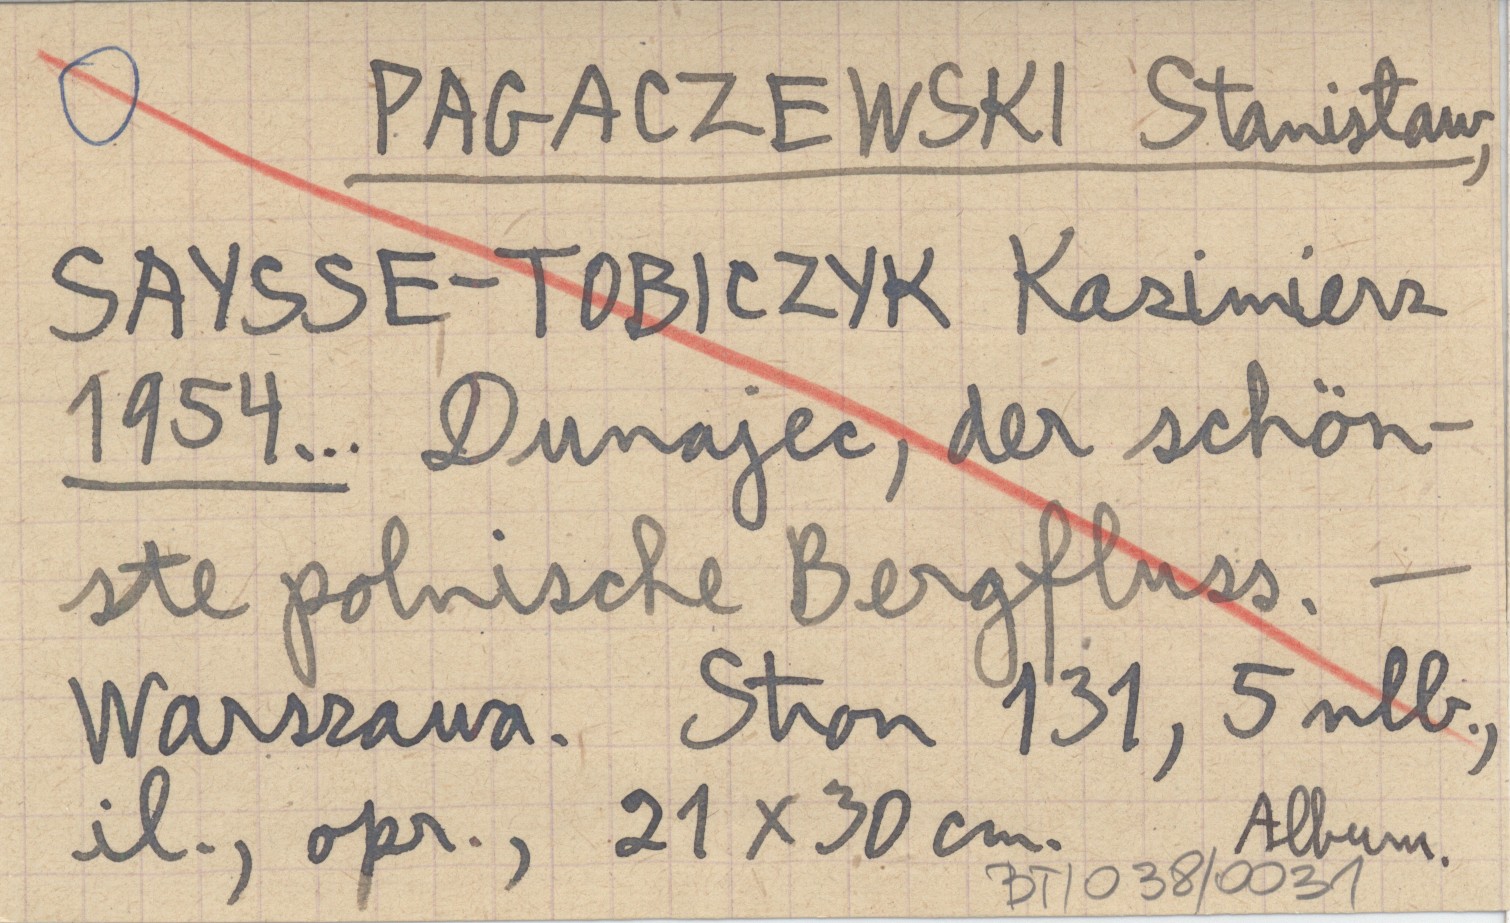 PAGACZEWSKI Stanisław,
SAYSSE-TOBICZYK Kazimierz
1954... Dunajec, der schön-
ste polnische Bergfluss. —
Warszawa. Stron 131, 5 nlb.,
il., opr., 21 x 30 cm. Album.
BT/038/0031